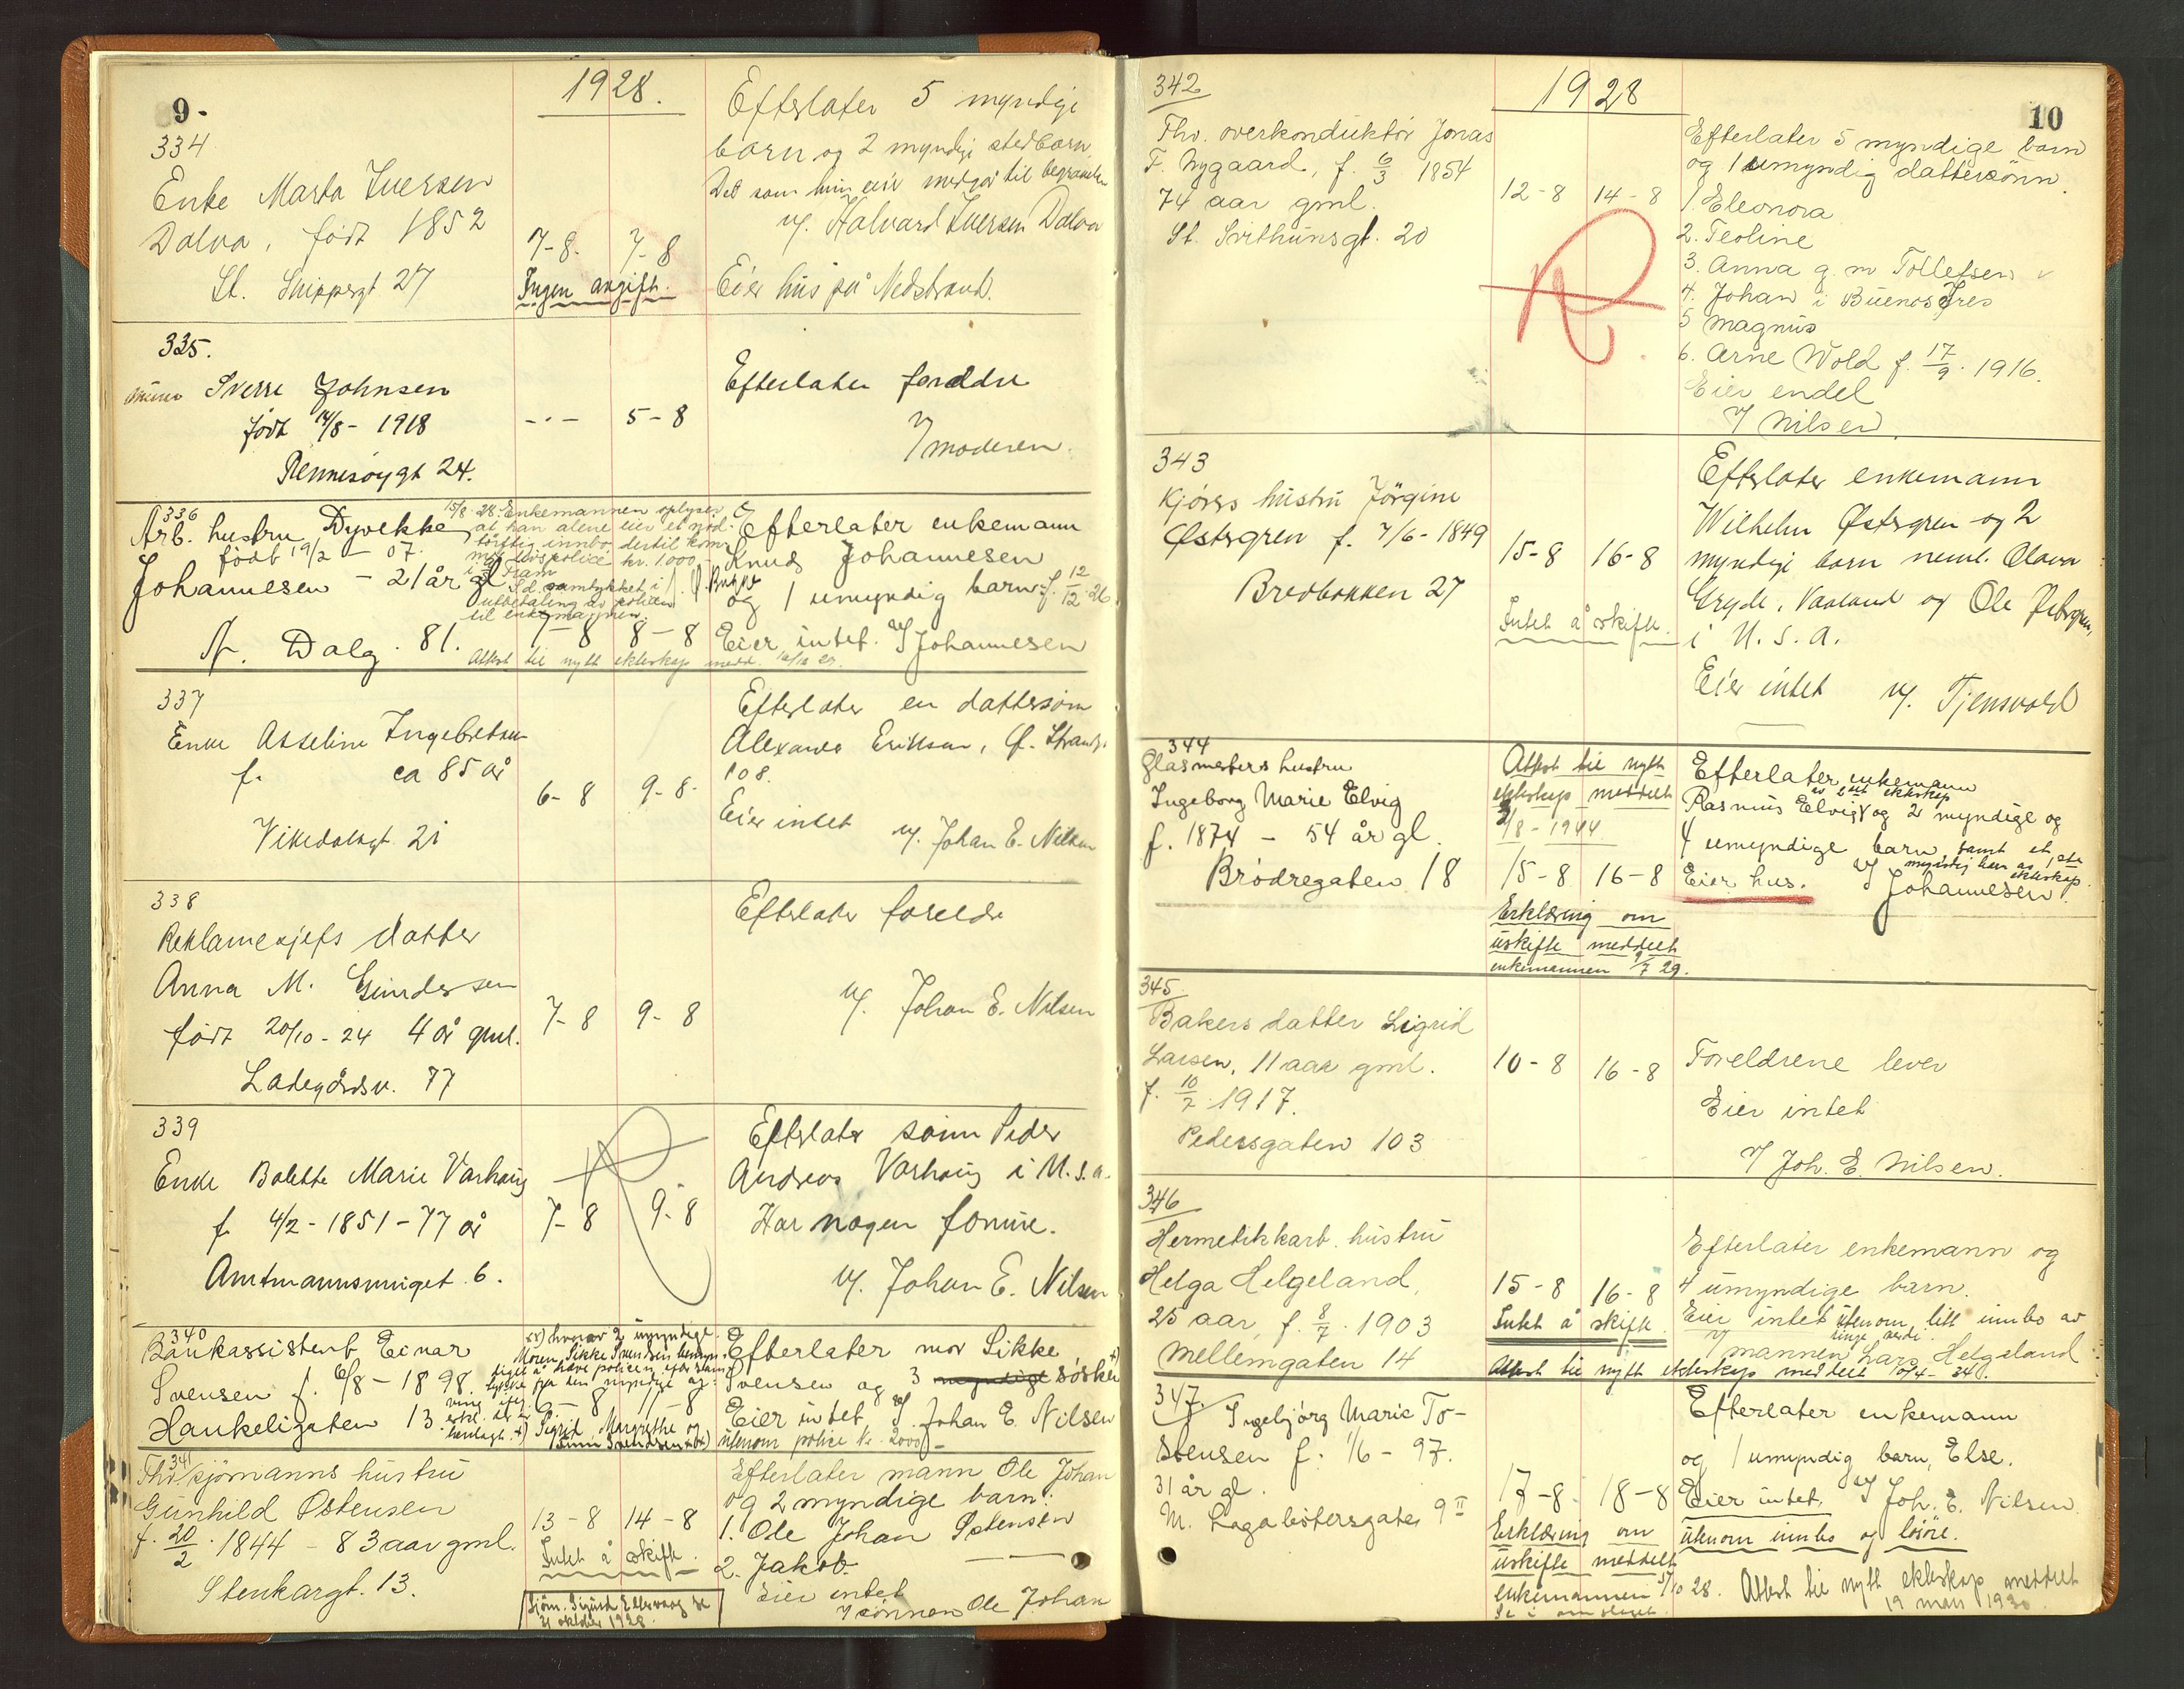 9-
1928.
334
Enke Marta Iversen
Dalva, født 1852
St. Skippergt 27
7-8. 7-8
Ingen avgift.
Efterlater 5 myndige
barn og 2 myndige stedbarn
Det som hun eier medgår til begravelsen
v/. Halvard Iversen Dalva
Eier hus på Nedstrand.
335.
Sverre Johnsen
født 14/8 - 1918
Rennesøygt 24.
- - - 5-8
Efterlater foreldre
v/ moderen.
336
Arb. hustru Dyvekke
født 19/2 - 07.
Johannesen - 21 år gl
N. Dalg. 81.
15/8-28 Enkemannen oplyser
at han alene eier et nød-
tørftig innbo dertil kom-
mer livspolice kr. 1000
i Fram
S.d. samtykket i
utbetaling av policen
til enkemannen.
7-8 8-8
Attest til nytt ekteskap medd.
Efterlater enkemann
Knud Johannesen
og 1 umyndig barn f. 12/12-26
Eier intet. v/ Johannesen
337
Enke Asseline Ingebretsen
f. ca 85 år
Vikedalsgt 21
6-8 9-8-
Efterlater en dattersønn
Alexander Eriksen, Ø. Strandg.
108.
Eier intet v/. Johan E. Nilsen
338
Reklamesjefs datter
Anna M. Gundersen
født 20/10-24 4 år gml.
Ladegårdsv. 77
7-8 9-8
Efterlater foreldre
v/. Johan E. Nilsen
339
Enke Bolette Marie Varhaug
f. 4/2-1851-77 år
Amtmannsmuget 6.
7-8 9-8
Efterlater sønn Peder
Andreas Varhaug i U.S.A.
Har nogen formue.
v/. Johan E. Nilsen
340
Bankassistent Einar
Svensen f. 6/8-1898.
Haukeligaten 13.
xx) hvorav 2 umyndige.
6-8 11-8
+) Sigrid, Margrethe og
Efterlater mor Sikke
Svensen og 3 myndige søsken +)
Eier intet v/. Johan E. Nilsen
utenom police kr. 2000-
341
Fhv. sjømanns hustru
Gunhild Østensen
f. 20/2 . 1844 - 83 aar gml.
Stenkargt. 13.
13-8 14-8
Intet å skifte.
Efterlater mann Ole Johan
og 2 myndige barn:
1. Ole Johan Østensen
2. Jakob — —
Eier intet
v/ sønnen Ole Johan
Sjøm. Sigurd Ellevaag se
21 oktober 1928.
10
1928
342
Fhv. overkonduktør Jonas
F. Nygaard, f. 6/3 1854
74 aar gml.
St. Svithunsgt. 20
12-8 14-8
Efterlater 5 myndige barn
og 1 umyndig dattersønn.
1. Eleonora
2. Teoline
3. Anna g. m Tollefsen
4. Johan i Buenos Ires
5 Magnus
6. Arne Wold f. 17/9. 1916.
Eier endel
v/ Nilsen.
343
Kjørers hustru Jørgine
Østrgren f. 7/6-1849
Bredbakken 27
15-8 16-8
Intet å skifte.
Efterlater enkemann
Wilhelm Østrgren og 2
myndige barn neml. Olava
Gryde, Vaaland og Ole Østrgren,
i U.S.A.
Eier intet v/. Tjensvold
344
Glasmesters hustru
Ingeborg Marie Elvig
f. 1874 - 54 år gl.
Brødregaten 18
Attest til nytt
ekteskap meddelt
3/8-1944.
15-8 16-8
Erklæring om
uskifte meddelt
enkemannen 9/7 29.
Efterlater enkemann
av 2det ekteskap
Rasmus Elvig og 2 myndige og
4 umyndige barn samt et
myndig barn av 1ste
ekteskap.
Eier hus. v/ Johannesen.
345.
Bakers datter Sigrid
Larsen, 11 aar gml.
f. 10/7 1917.
Pedersgaten 103
10-8 16-8
Foreldrene lever
Eier intet
v/ Joh. E. Nilsen.
346
Hermetikkarb. hustru
Helga Helgeland,
25 aar, f. 8/7. 1903
Mellemgaten 14
15-8 16-8
Intet å skifte.
Efterlater enkemann og
4 umyndige barn.
Eier intet utenom litt innbo av
ringe verdi.
v/ mannen Lars Helgeland
Attest til nytt ekteskap meddelt 10/4-34.
347.
Ingebjørg Marie To-
stensen f. 1/6-97.
31 år gl.
M. Lagabøtersgate 9 II
17-8. 18-8
Erklæring om
uskifte meddelt
enkemannen 17/10 28.
Efterlater enkemann
og 1 umyndig barn, Else.
Eier intet. v/ Joh. E. Nilsen.
utenom innbo og løsøre.
Attest til nytt ekteskap meddelt
19 mars 1930